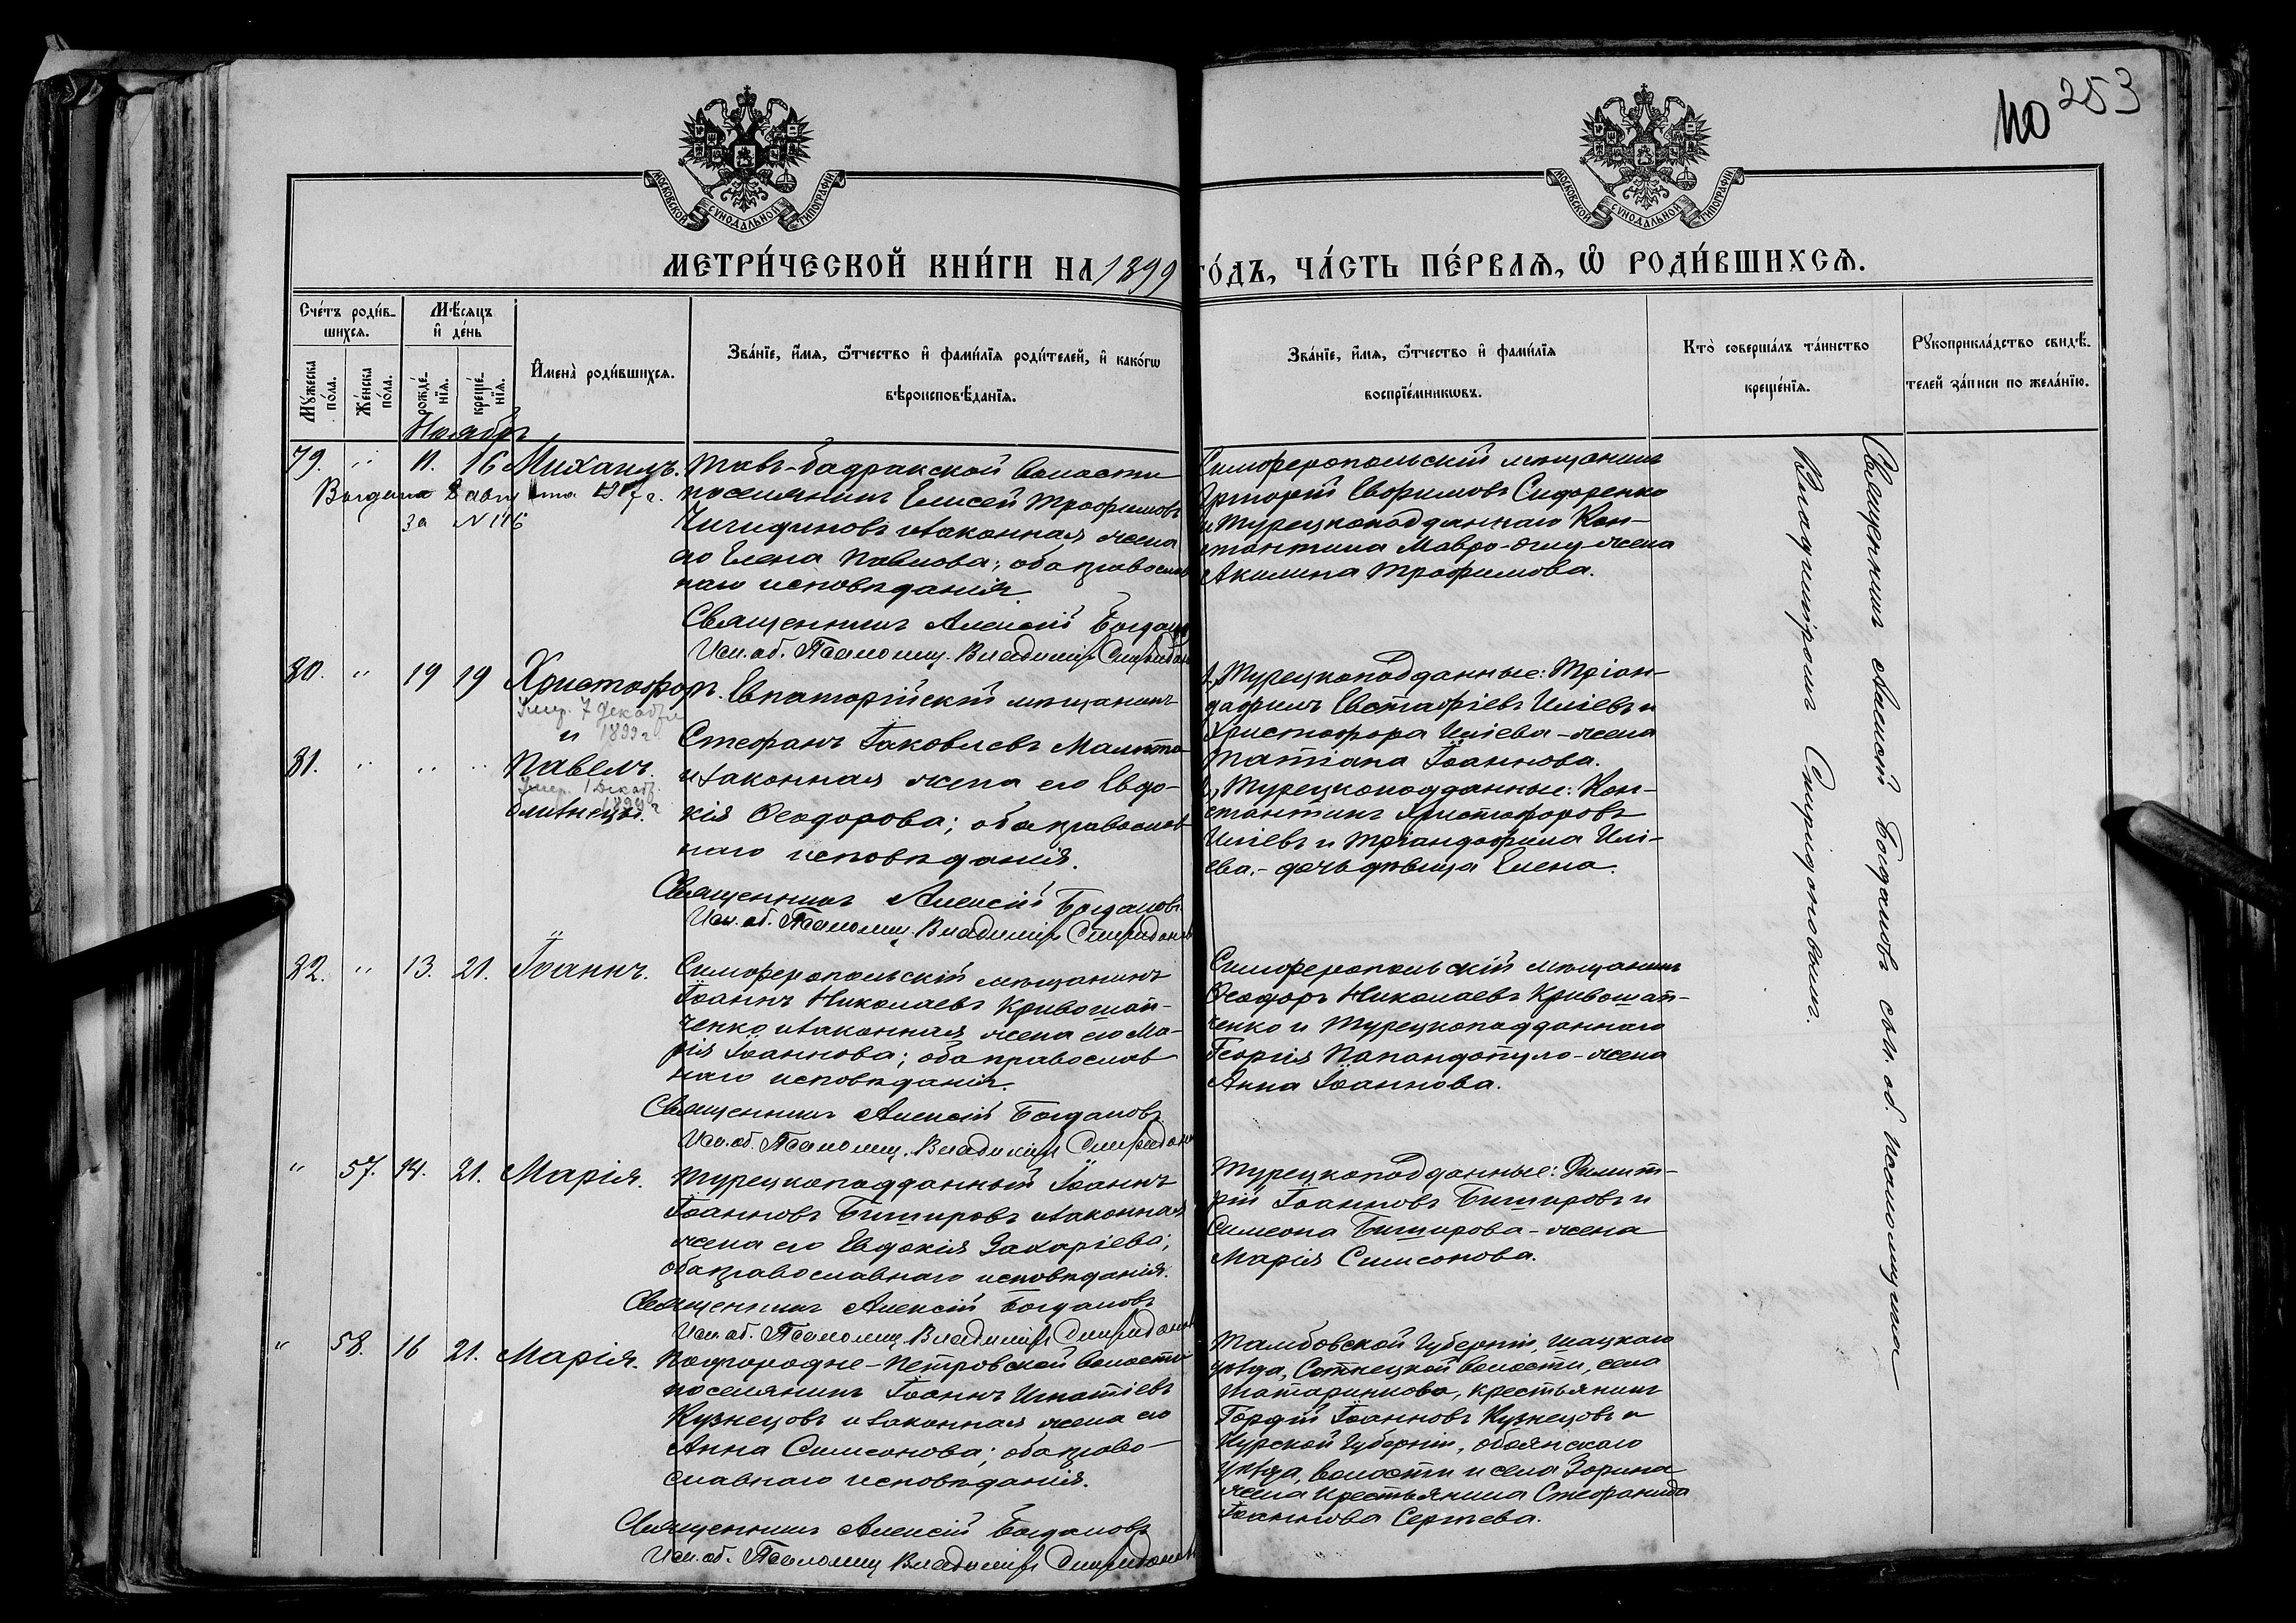 110 253
МОСКОВСКОЙ СѴНОДАЛЬНОЙ ТИПОГРАФІИ
МОСКОВСКОЙ СѴНОДАЛЬНОЙ ТИПОГРАФІИ
МЕТРИ́ЧЕСКОЙ КНИ́ГИ НА 1899 ГО́ДЪ, ЧА́СТЬ ПЕ́РВАѦ, Ѡ҆ РОДИ́ВШИХСѦ.
Сче́тъ роди́в-
шихсѧ.
Мѣ́сѧцъ
и҆ де́нь
Мꙋ́жеска по́ла.
Же́нска по́ла.
рожде́-нїѧ.
креще́-нїѧ.
И҆мена̀ роди́вшихсѧ.
Зва́нїе, и҆́мѧ, ѻ҆́тчество и҆ фами́лїѧ роди́телей, и҆ како́гѡ
вѣроисповѣ́данїѧ.
Зва́нїе, и҆́мѧ, ѻ҆́тчество и҆ фами́лїѧ
воспрїе́мникѡвъ.
Кто̀ соверша́лъ та́инство
креще́нїѧ.
Рꙋкоприкла́дство свидѣ́-
телей за́писи по жела́нїю.
Ноябрь
79. " 11. 16 Михаилъ.
Выдана
за № 116
Тавъ-Бадракской волости
поселянинъ Елисей Трофимовъ
и законная жена
его Елена Павлова; оба православ
наго исповѣданія.
Священникъ Алексій Богданов
Исп. об. Псаломщ. Владиміръ Спиридонов
Симферопольскій мѣщанинъ
Григорій Евфимовъ Сидоренко
и Турецкоподданнаго Кон-
стантина Мавро-Оглу жена
Акилина Трофимова.
80. " 19 19 Христофоръ.
Умер. 7 Декабря
1899 г.
и
81. " " " Павелъ.
Умер. 1 Декабр.
1899 г
близнецы.
Евпаторійскій мѣщанинъ
Стефанъ Іаковлевъ
и законная жена его Евдо-
кія Ѳеодорова; оба православ-
наго исповѣданія.
Священникъ Алексій Богдановъ
Исп. об. Псаломщ. Владиміръ Спиридонов
1, Турецкоподданные: Тріан-
дафилъ Евстафіевъ Иліевъ и
Христофора Иліева - жена
Татіана Іоаннова.
2, Турецкоподданные: Кон-
стантинъ Христофоровъ
Иліевъ и Тріандафила Илі-
ева - дочь дѣвица Елена.
82. " 13. 21. Іоаннъ.
Симферопольскій мѣщанинъ
Іоаннъ Николаевъ Кривошап-
ченко и законная жена его Ма-
рія Іоаннова; оба православ
наго исповѣданія.
Священникъ Алексій Богдановъ
Исп. об. Псаломщ. Владиміръ Спиридонов
Симферопольскій мѣщанинъ
Ѳеодоръ Николаевъ Кривошап-
ченко и Турецкоподданнаго
Георгія Папандопуло - жена
Анна Іоаннова.
" 57. 14. 21. Марія.
Турецкоподданный Іоаннъ
Іоанновъ Бишировъ и законная
жена его Евдокія Захаріева;
оба православнаго исповѣданія.
Священникъ Алексій Богдановъ
Исп. об. Псаломщ. Владиміръ Спиридонов
Турецкоподданные: Димит-
рій Іоанновъ Бишировъ и
Симеона Биширова - жена
Марія Симеонова.
" 58. 16 21. Марія.
Подгородне-Петровской волости
поселянинъ Іоаннъ Игнатіевъ
Кузнецовъ и законная жена его
Анна Симеонова; оба право-
славнаго исповѣданія.
Священникъ Алексій Богдановъ
Исп. об. Псаломщ Владиміръ Спиридонов
Тамбовской Губерніи, Шацкаго
уѣзда, волости, села
крестьянинъ
Гордій Іоанновъ Кузнецовъ и
Курской Губерніи, Обоянскаго
уѣзда, волости и села Зорина
жена крестьянина Стефанида
Іоаннова Сергѣева.
Священникъ Алексій Богдановъ съ и. об. псаломщика
Владиміромъ Спиридоновымъ.